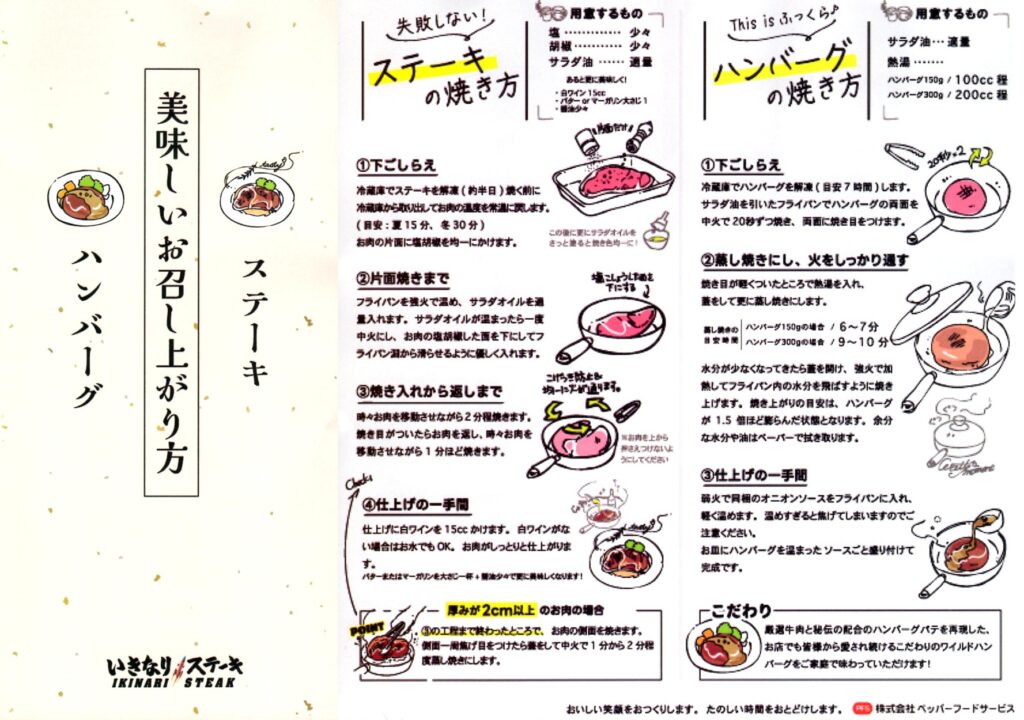 美味しいお召し上がり方
ステーキ
ハンバーグ
いきなりステーキ
IKINARI STEAK
失敗しない！
ステーキ
の焼き方
用意するもの
塩 ・・・・・・・・・・・・ 少々
胡椒 ・・・・・・・・・・ 少々
サラダ油 ・・・・・・ 適量
あると更に美味しく！
・白ワイン 15cc
・バター or マーガリン大さじ 1
・醤油少々
①下ごしらえ
片面だけ
冷蔵庫でステーキを解凍 ( 約半日 ) 焼く前に
冷蔵庫から取り出してお肉の温度を常温に戻します。
( 目安 : 夏 15 分、冬 30 分 )
お肉の片面に塩胡椒を均一にかけます。
この後に更にサラダオイルを
さっと塗ると焼き色均一に！
②片面焼きまで
塩こしょうした面を
下にする
フライパンを強火で温め、サラダオイルを適
量入れます。サラダオイルが温まったら一度
中火にし、お肉の塩胡椒した面を下にしてフ
ライパン淵から滑らせるように優しく入れます。
③焼き入れから返しまで
こげつき防止&
均一に火が通ります。
時々お肉を移動させながら２分程焼きます。
焼き目がついたらお肉を返し、時々お肉を
移動させながら 1 分ほど焼きます。
※お肉を上から
押さえつけないよ
うにしてください
Check!
④仕上げの一手間
仕上げに白ワインを 15cc かけます。白ワインがな
い場合はお水でも OK。お肉がしっとりと仕上がりま
す。
バターまたはマーガリンを大さじ一杯 + 醤油少々で更に美味しくなります！
POINT
厚みが2cm以上 のお肉の場合
③の工程まで終わったところで、お肉の側面を焼きます。
側面一周焦げ目をつけたら蓋をして中火で 1 分から 2 分程
度蒸し焼きにします。
This is ふっくら♪
ハンバーグ
の焼き方
用意するもの
サラダ油・・・適量
熱湯・・・・・・・
ハンバーグ150g / 100cc 程
ハンバーグ300g / 200cc 程
①下ごしらえ
20秒×2
冷蔵庫でハンバーグを解凍 ( 目安 7 時間 ) します。
サラダ油を引いたフライパンでハンバーグの両面を
中火で 20秒ずつ焼き、両面に焼き目をつけます。
②蒸し焼きにし、火をしっかり通す
焼き目が軽くついたところで熱湯を入れ、
蓋をして更に蒸し焼きにします。
蒸し焼きの
目安時間
ハンバーグ150gの場合 / 6～7分
ハンバーグ300gの場合 / 9～10 分
水分が少なくなってきたら蓋を開け、強火で加
熱してフライパン内の水分を飛ばすように焼き
上げます。焼き上がりの目安は、ハンバーグ
が 1.5 倍ほど膨らんだ状態となります。余分
な水分や油はペーパーで拭き取ります。
③仕上げの一手間
弱火で同梱のオニオンソースをフライパンに入れ、
軽く温めます。温めすぎると焦げてしまいますのでご
注意ください。
お皿にハンバーグを温まった ソースごと盛り付けて
完成です。
こだわり
厳選牛肉と秘伝の配合のハンバーグパテを再現した、
お店でも皆様から愛され続けるこだわりのワイルドハン
バーグをご家庭で味わっていただけます！
おいしい笑顔をおつくりします。たのしい時間をおとどけします。
PFS 株式会社 ペッパーフードサービス